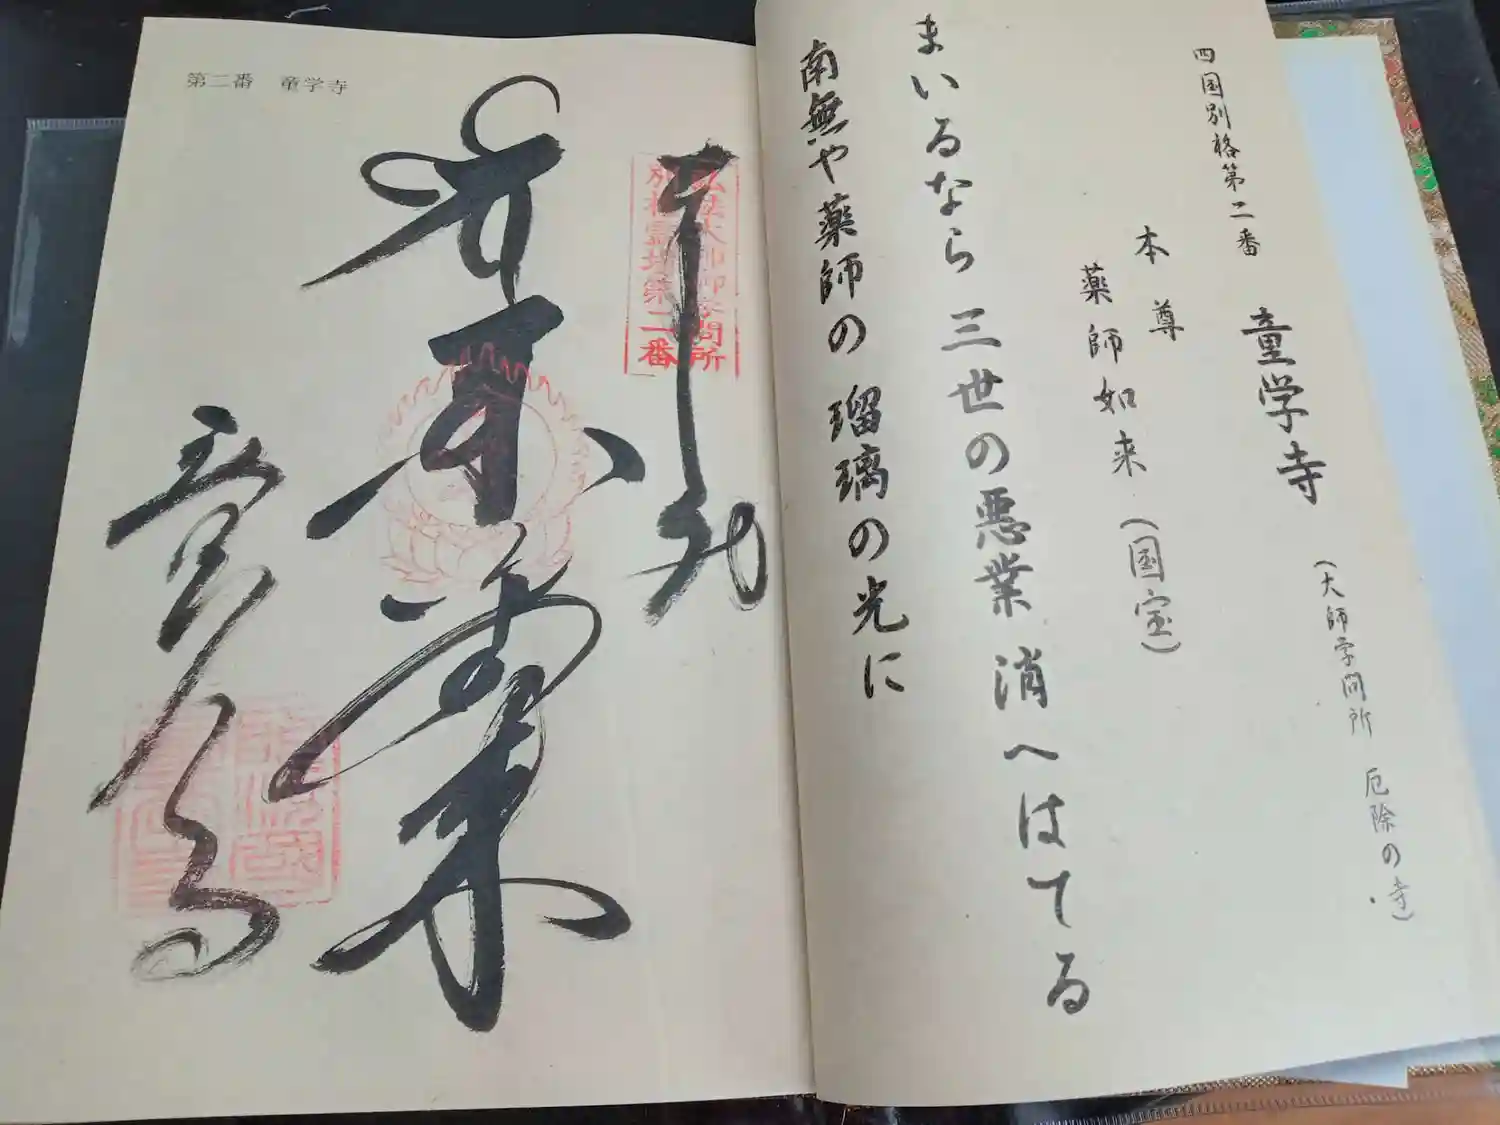 四国別格第二番 童学寺 (大師学問所 厄除の寺)
本尊
薬師如来(国宝)
まいるなら 三世の悪業 消へはてる
南無や薬師の瑠璃の光に
第二番 童学寺
弘法大師御学問所
別格霊場第二番
奉納